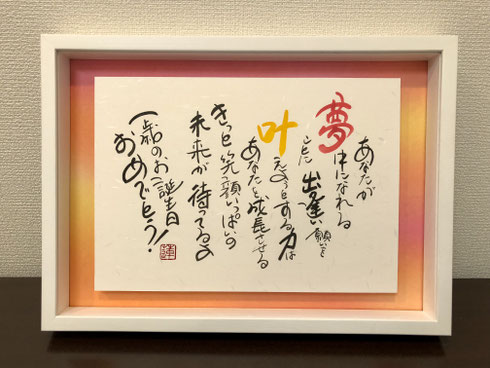 あなたが
夢中になれる
ことに出逢い願いを
叶えようとする力は
あなたを成長させる
きっと笑顔いっぱいの
未来が待ってるよ
一歳のお誕生日
おめでとう!